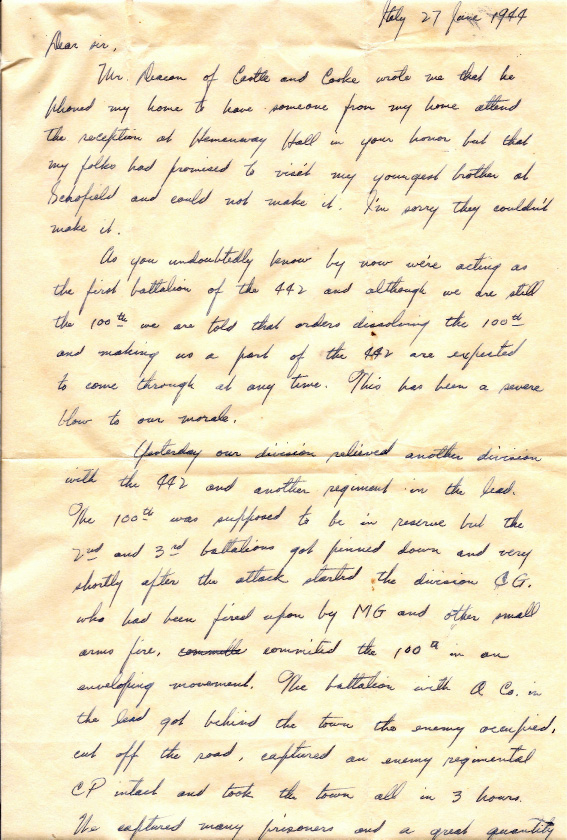 Italy 27 June 1944
Dear sir,
Mr. Deacon of Castle and Cooke wrote me that he
phoned my home to have someone from my home attend
the reception at Hemenway Hall in your honor but that
my folks had promised to visit my youngest brother at
Schofield and could not make it. I'm sorry they couldn't
make it.
As you undoubtedly know by now we're acting as
the first battalion of the 442 and although we are still
the 100th we are told that orders dissolving the 100th
and making us a part of the 442 are expected
to come through at any time. This has been a severe
blow to our morale.
Yesterday our division relieved another division
with the 442 and another regiment in the lead.
The 100th was supposed to be in reserve but the
2nd and 3rd battalions got pinned down and very
shortly after the attack started the division C.G.
who had been fired upon by MG and other small
arms fire, committed the 100th in an
enveloping movement. The battalion with A Co. in
the lead got behind the town the enemy occupied,
cut off the road, captured an enemy regimental
CP intact and took the town all in 3 hours.
We captured many prisoners and a great quantity